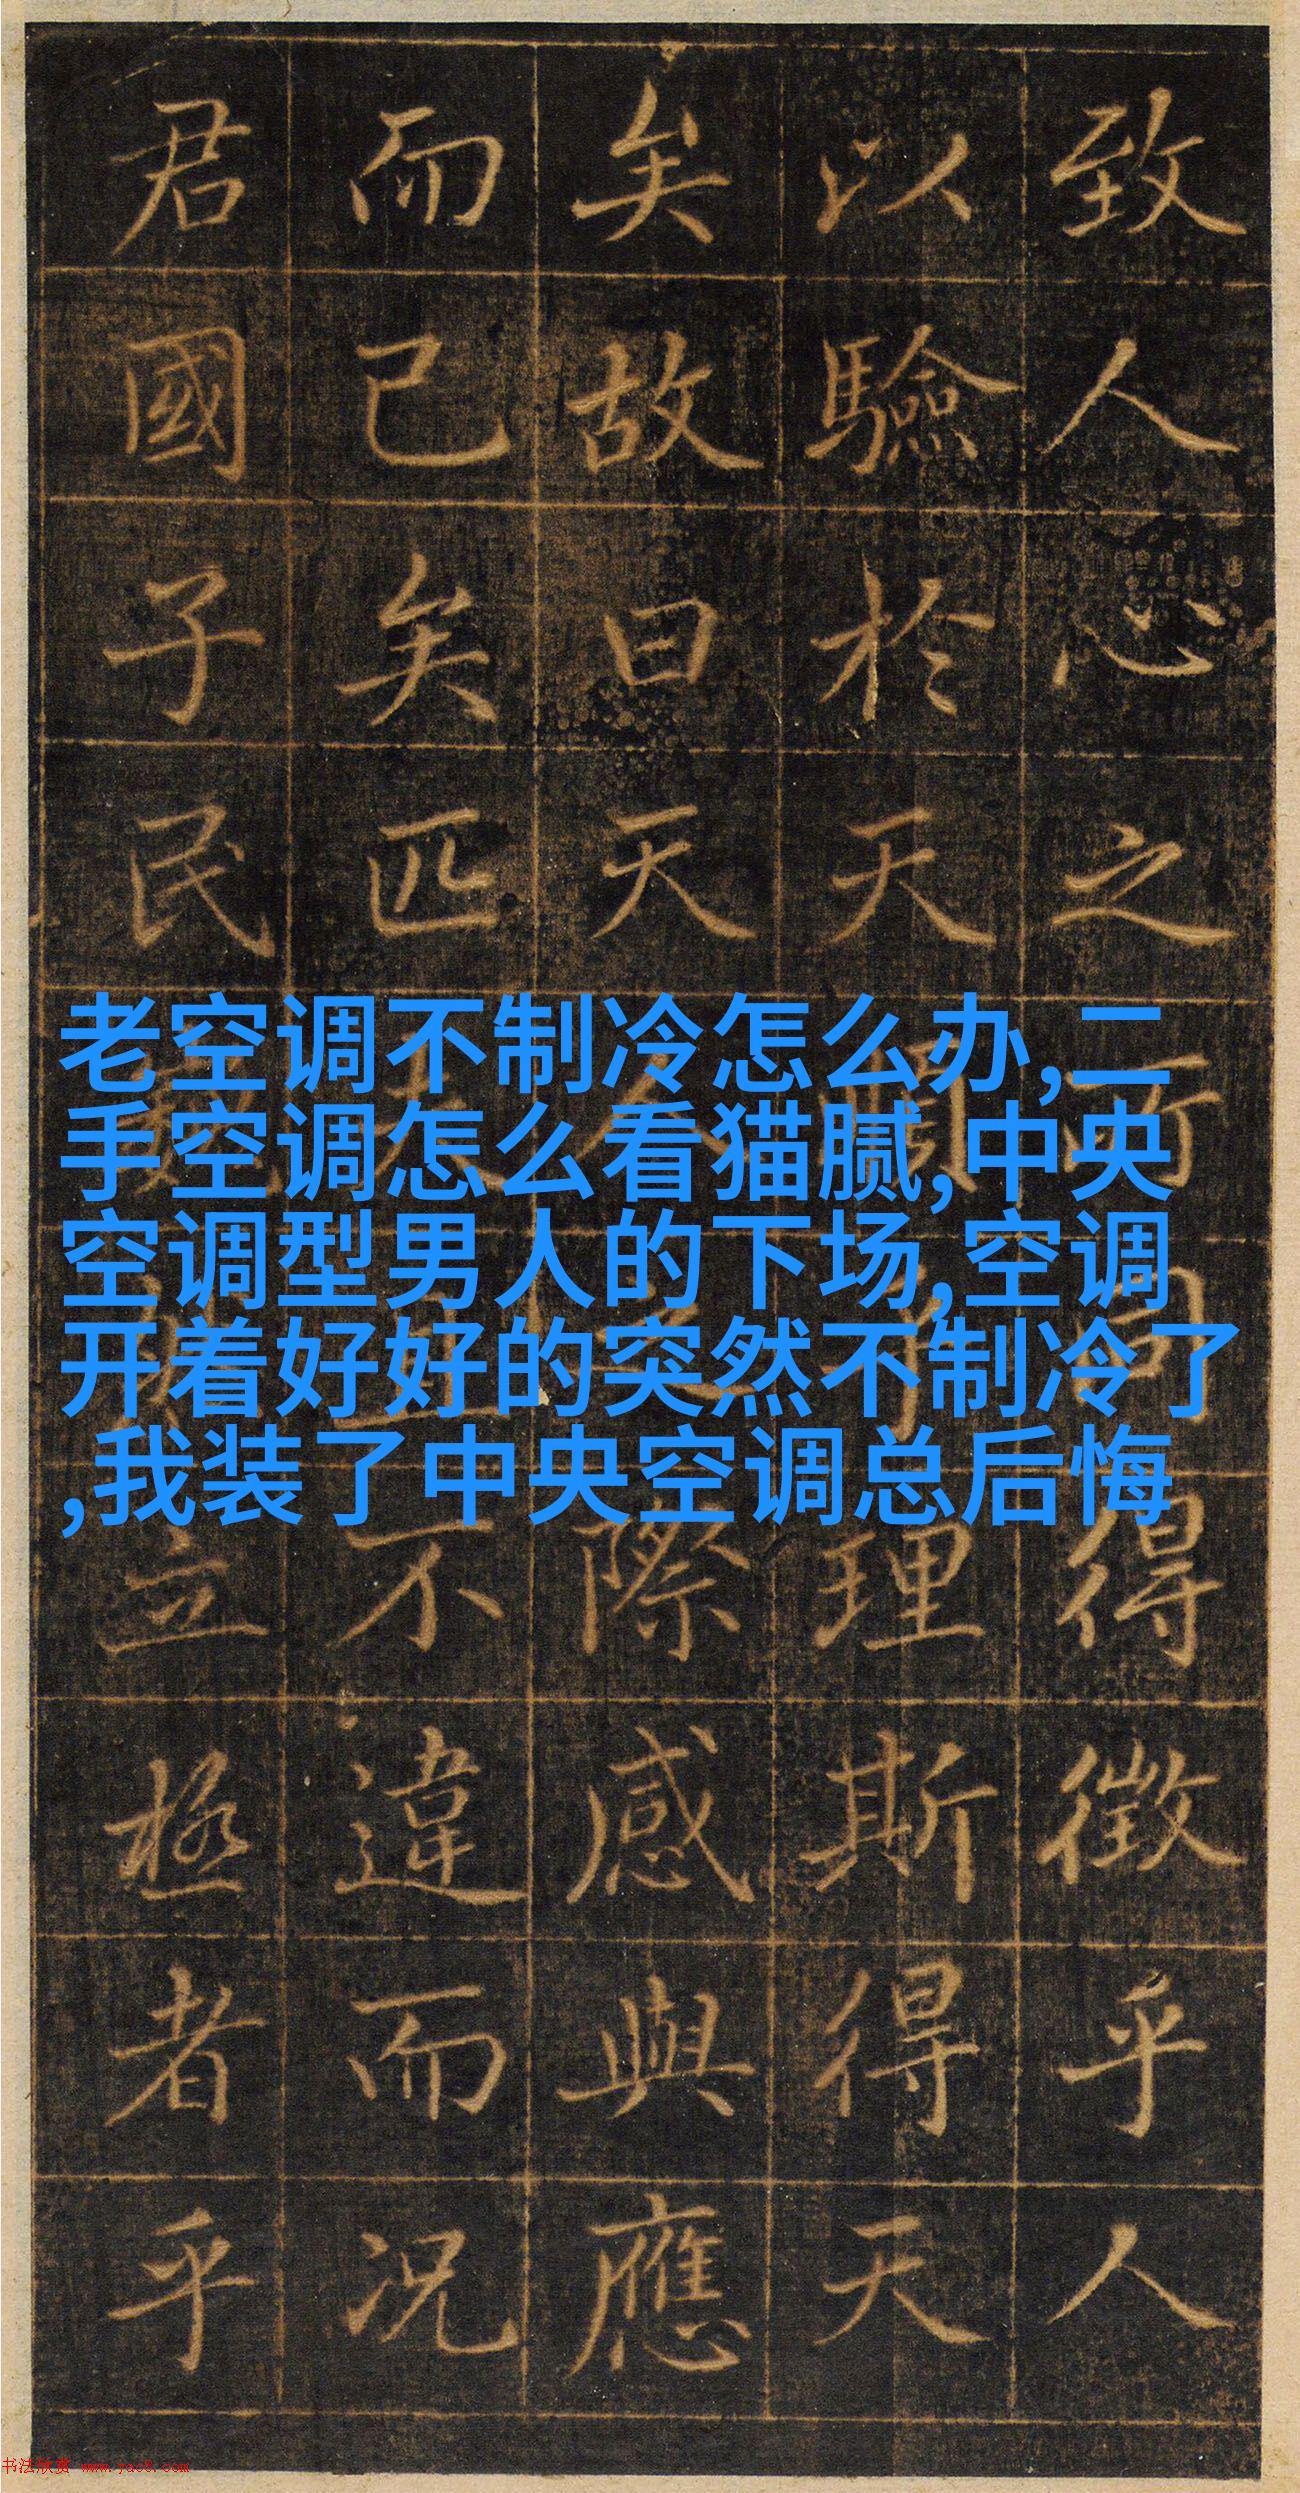 致人心之所同得徵乎人
以驗於天乎理斯得天
矣故曰天人之際感與應
而已矣匹夫且不違而況
君國子民立極者乎
老空调不制冷怎么办,二
手空调怎么看猫腻,中央
空调型男人的下场,空调
开着好好的突然不制冷了
,我装了中央空调总后悔
书法欣赏 www.yac8.com